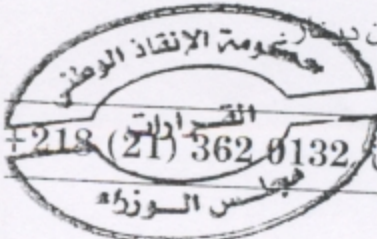 دينار
حكومة الإنقاذ الوطني
القرارات
+218 (21) 362 0132
مجلس الوزراء